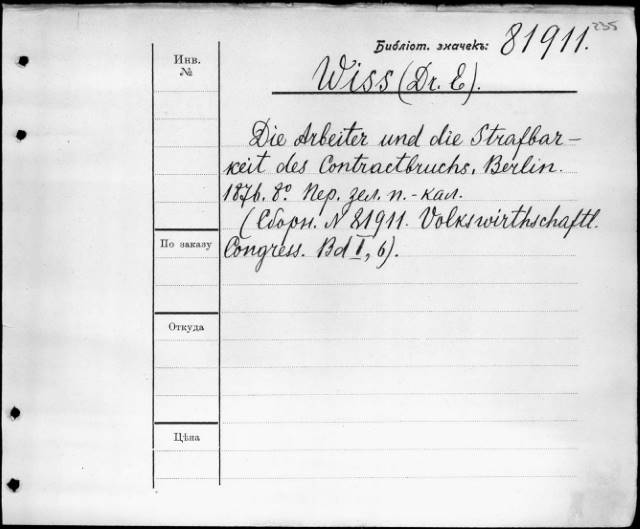 235
Библіот. значекъ: 81911.
Инв.
№
Wiss (Dr. E).
Die Arbeiter und die Strafbar-
keit des Contractbruchs, Berlin.
1876. 8º. Пер. зел. п.-кал.
(Сборн. N 81911. Volkswirthschaftl.
Congress. Bd I, 6).
По заказу
Откуда
Цѣна